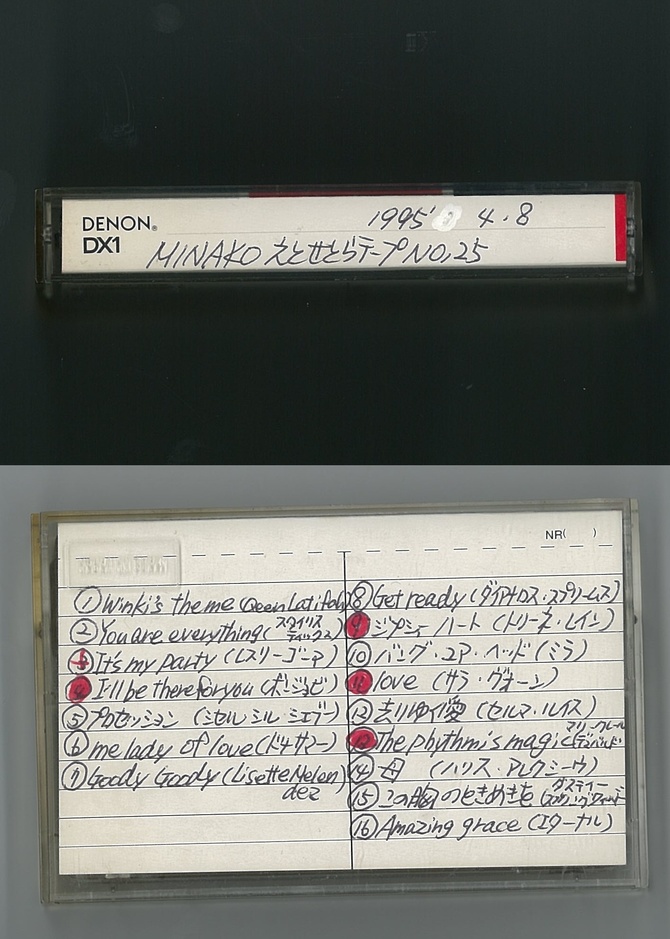 DENON®
DX1
1995' 4.8
MINAKO えとせとらテープ NO,25
NR( )
① Winki's theme (Qeen Latifah)
② You are everything (スタイリスティックス)
③ It's my party (レスリー・ゴーア)
④ I'll be there for you (ボージョビ)
⑤ プロセッション (ミセルシルミエブー)
⑥ me lady of love (ドナサマー)
⑦ Goody Goody (Lisette Melendez
⑧ Get ready (ダイアナロス・スプリームス)
⑨ ハート (ドリーネ・レイン)
⑩ バング・ユア・ヘッド (ミラ)
⑪ love (サラ・ヴォーン)
⑫ 去りゆく愛 (セルマ・ルイス)
⑬ The phythm is magic (マリークレール
⑭ 母 (ハリス・アレクシーウ)
⑮ この胸のときめきを (ダスティー
⑯ Amazing grace (エターナル)